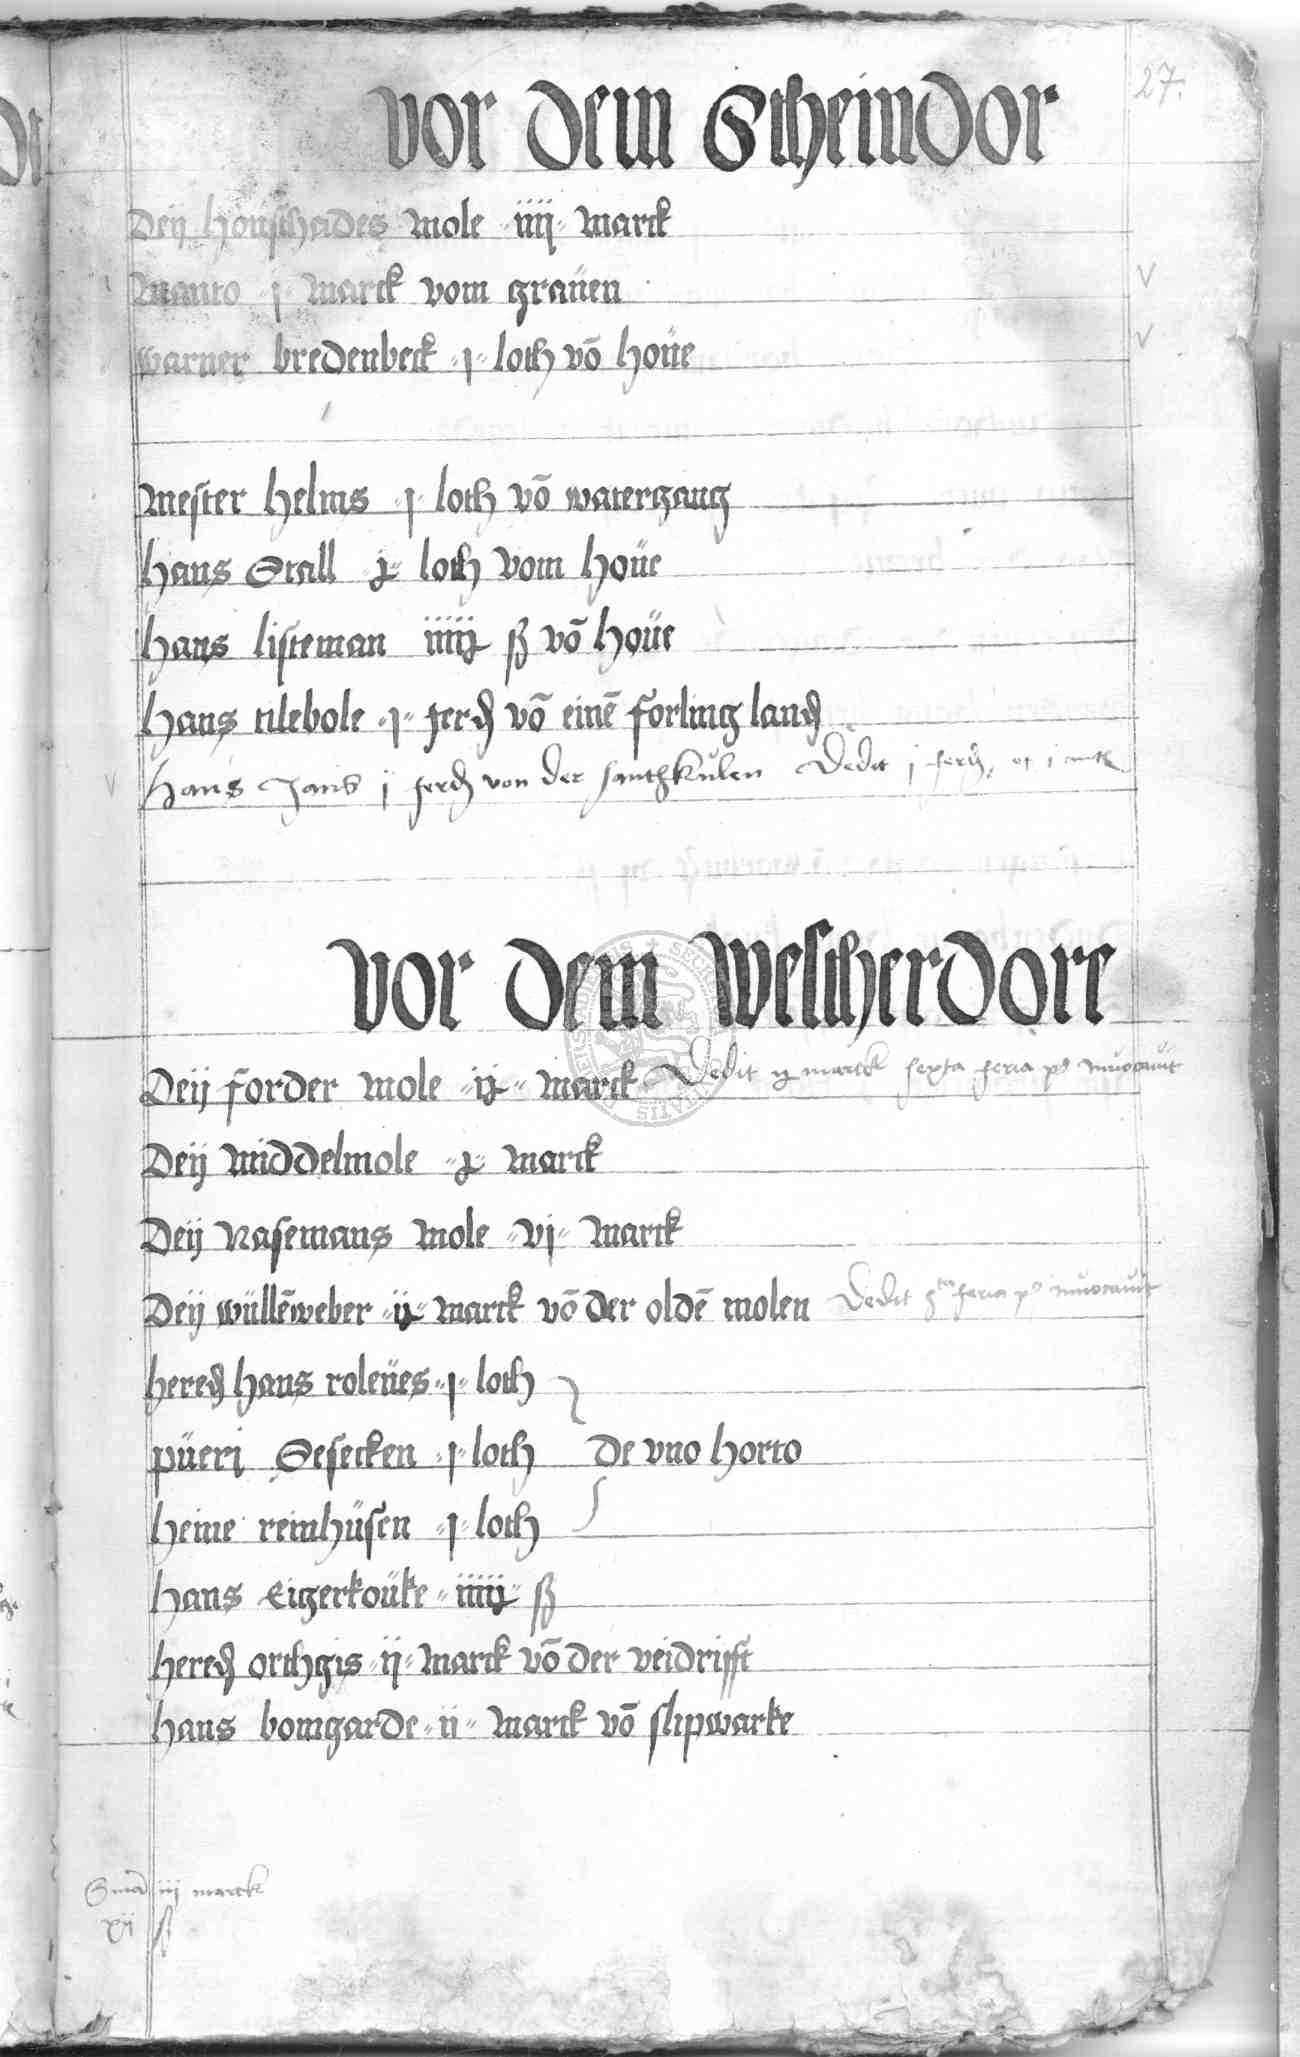 27.
Vor dem Stheindor
Deÿ houstheides mole iiij marck
Manto j marck vom grauen
warner bredenbeck j loth vō houe
Mester helms j loth vō watergang
hans Stall j loth vom houe
hans listeman iiiij ß vō houe
hans tilebole j ferd vō einē forling land
Hans Jans j ferd von der santhkulen Dedit j ferd, et j
Vor dem Westherdore
Deÿ forder mole ij marck Dedit ij marck sexta feria p9 invocavit
Deÿ Middelmole j marck
Deÿ Nasemans mole vj marck
Deÿ wüllēweber ij marck vō der oldē molen Dedit feria p9 invocavit
hered hans roleues j loth
pueri Sesecken j loth de vno horto
heine reinhusen j loth
hans Eigerkouke iiiij ß
hered orthgis ij marck vō der veidrifft
hans bomgarde ii marck vō slipwarke
Sma iij marck
xij ß